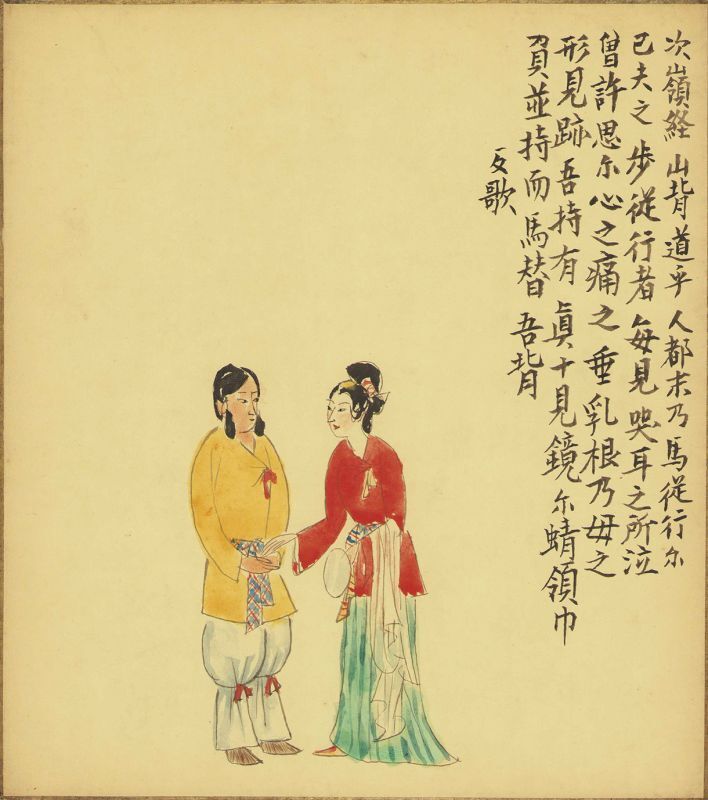 次嶺経 山背道乎 人都末乃馬従行尓
己夫之 歩従行者 毎見哭耳之所泣
曽許思尓心之痛之 垂乳根乃母之
形見跡吾持有 眞十見鏡尓蜻領巾
負並持而馬替 吾背
反歌